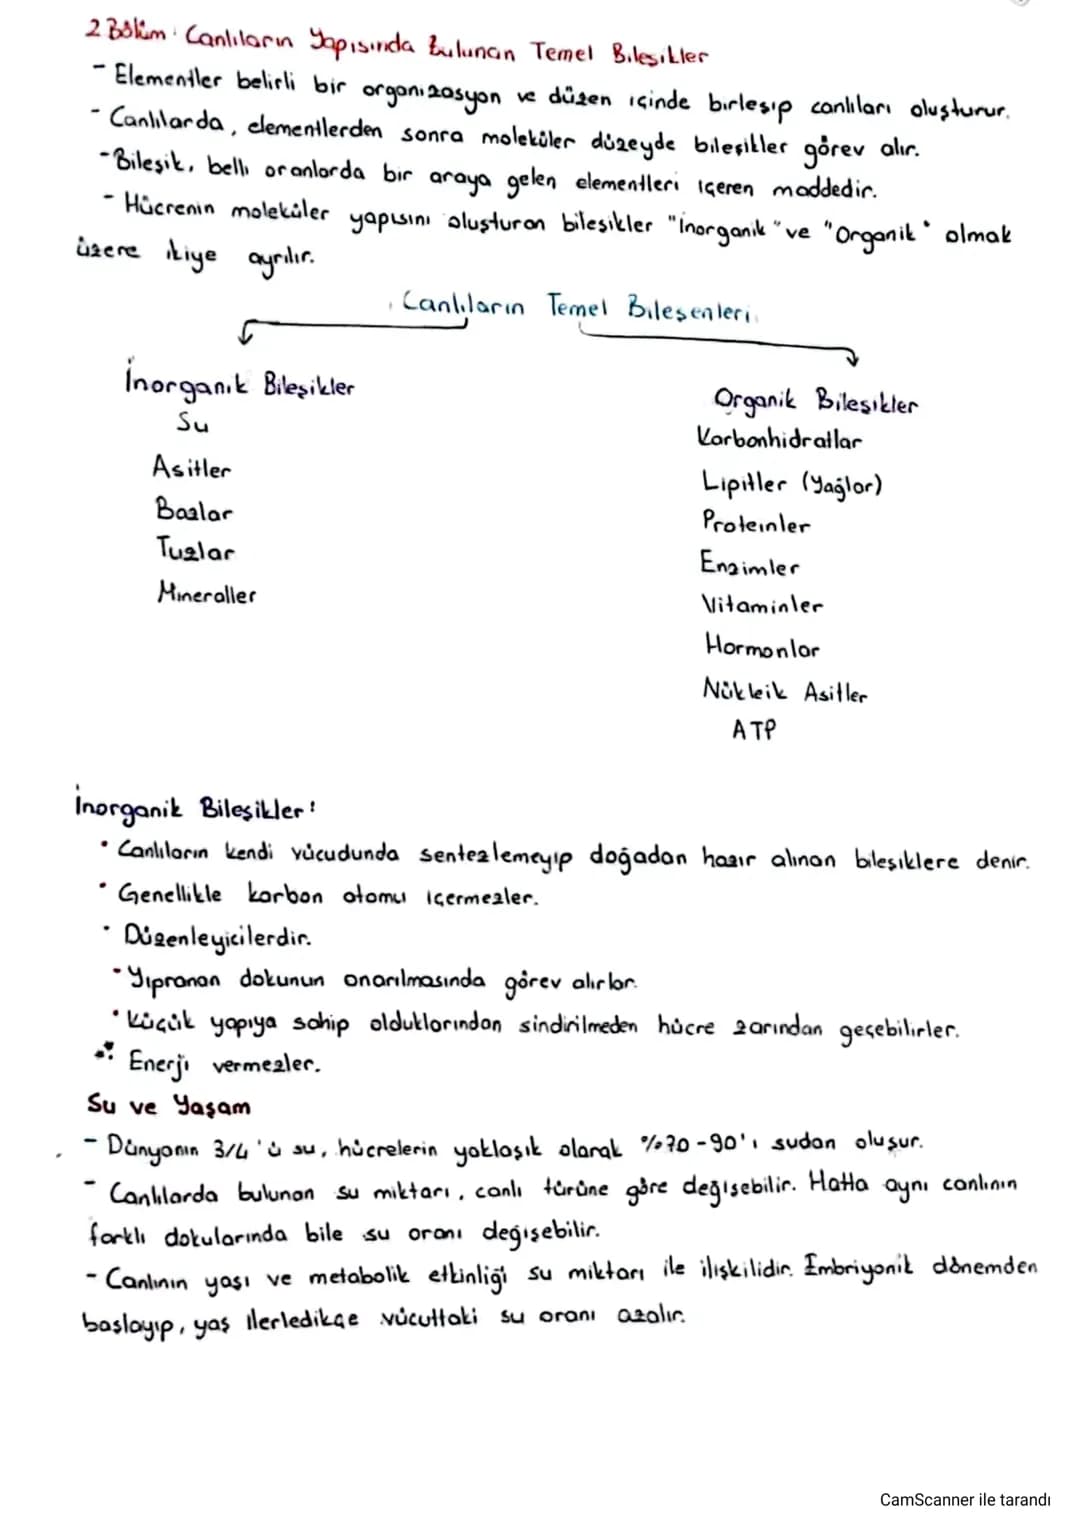 2 Bölüm: Canlıların Yapısında Bulunan Temel Bileşikler
- Elementler belirli bir organizasyon ve düzen içinde birleşip canlıları oluşturur.
- Canlılarda, elementlerden sonra moleküler düzeyde bileşikler görev alır.
- Bileşik, belli oranlarda bir araya gelen elementleri içeren maddedir.
- Hücrenin moleküler yapısını oluşturan bileşikler "İnorganik" ve "Organik" olmak
üzere ikiye ayrılır.
Canlıların Temel Bileşenleri
İnorganik Bileşikler
Su
Asitler
Bazlar
Tuzlar
Mineraller
Organik Bileşikler
Karbonhidratlar
Lipitler (Yağlar)
Proteinler
Enzimler
Vitaminler
Hormonlar
Nükleik Asitler
ATP
İnorganik Bileşikler:
• Canlıların kendi vücudunda sentezlemeyip doğadan hazır alınan bileşiklere denir.
• Genellikle karbon atomu içermezler.
• Düzenleyicilerdir.
• Yıpranan dokunun onarılmasında görev alırlar.
• Küçük yapıya sahip olduklarından sindirilmeden hücre zarından geçebilirler.
• Enerji vermezler.
Su ve Yaşam
- Dünyanın 3/4'ü su, hücrelerin yaklaşık olarak %70-90'ı sudan oluşur.
- Canlılarda bulunan su miktarı, canlı türüne göre değişebilir. Hatta aynı canlının
farklı dokularında bile su oranı değişebilir.
- Canlının yaşı ve metabolik etkinliği su miktarı ile ilişkilidir. Embriyonik dönemden
başlayıp, yaş ilerledikçe vücuttaki su oranı azalır.
CamScanner ile tarandı